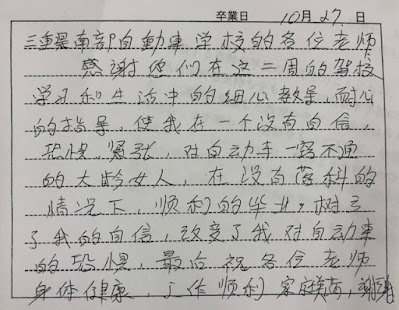 卒業日 10月27日
三重県南部自動車学校的各位老师
感谢您们在这二周的驾校
学习和生活中的细心教导,耐心
的指导,使我在一个没有自信,
恐惧,紧张,对自动车一窍不通
的大龄女人,在没有落科的
情况下,顺利的毕业,树立
了我的自信,改变了我对自动車
的恐惧,最后祝各位老师
身体健康,工作顺利 家庭美满,谢谢